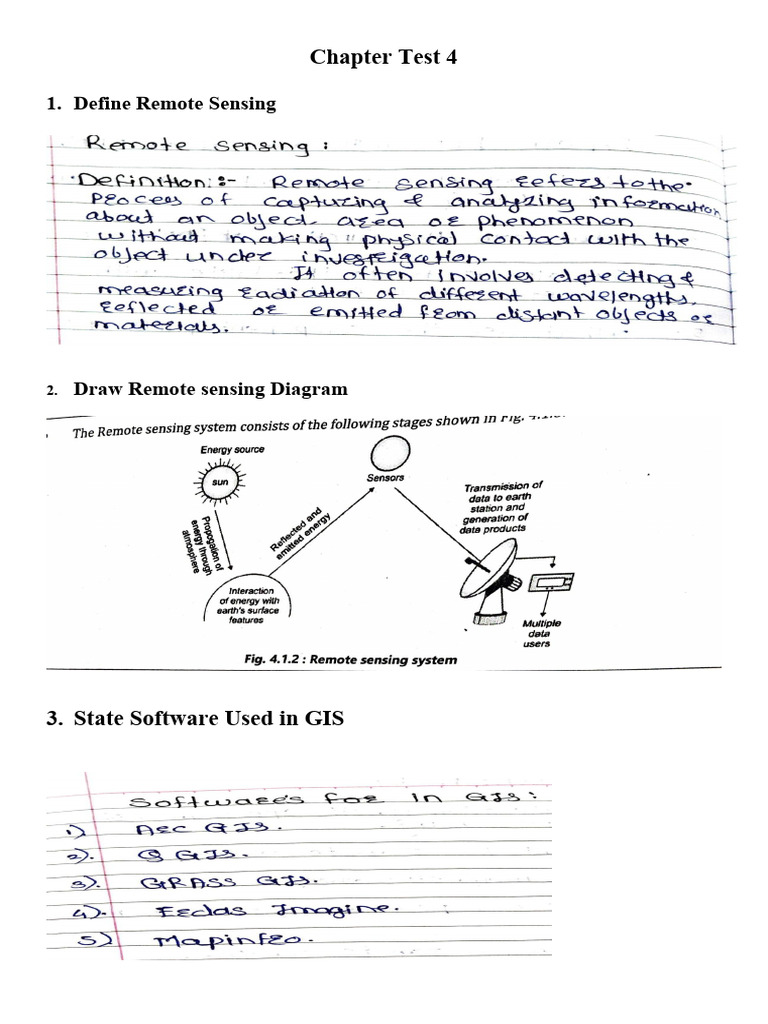 Chapter Test 4
1. Define Remote Sensing
Remote sensing :
Definition :- Remote sensing refers to the
process of capturing & analyzing information
about an object, area or phenomenon
without making physical contact with the
object under investigation.
It often involves detecting &
measuring radiation of different wavelengths.
reflected or emitted from distant objects or
materials.
2. Draw Remote sensing Diagram
The Remote sensing system consists of the following stages shown in Fig. 4.1.
Energy source
sun
Propogation of
energy through
atmosphere
Interaction
of energy with
earth's surface
features
Reflected and
emitted energy
Sensors
Transmission of
data to earth
station and
generation of
data products
Multiple
data
users
Fig. 4.1.2 : Remote sensing system
3. State Software Used in GIS
Softwares for in GIS :
1) Arc GIS.
2). Q GIS.
3). GRASS GIS.
4). Erdas Imagine.
5) Mapinfro.